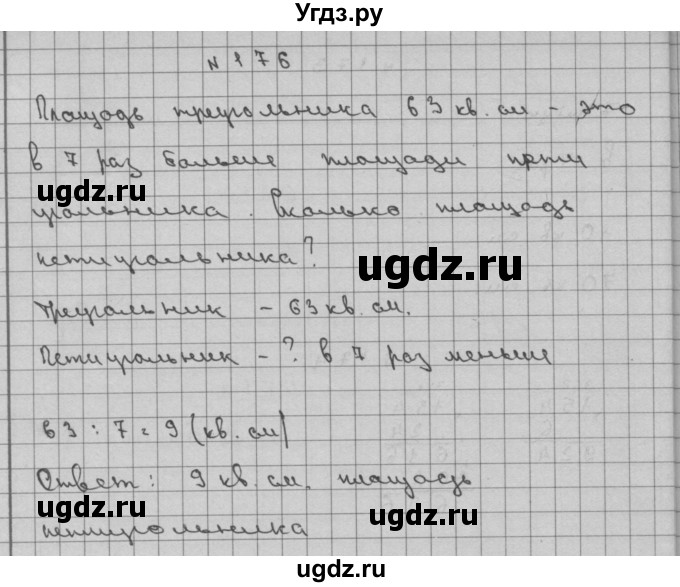 Угдз.ру
N 176
Площадь треугольника 63 кв. см - это
в 7 раз больше площади пяти
угольника. Сколько площадь
пятиугольника?
Треугольник - 63 кв. см.
Пятиугольник - ? в 7 раз меньше
63 : 7 = 9 (кв. см)
Ответ: 9 кв. см. площадь
пятиугольника
ugdz.ru
ugdz.ru
ugdz.ru
ugdz.ru
ugdz.ru
ugdz.ru